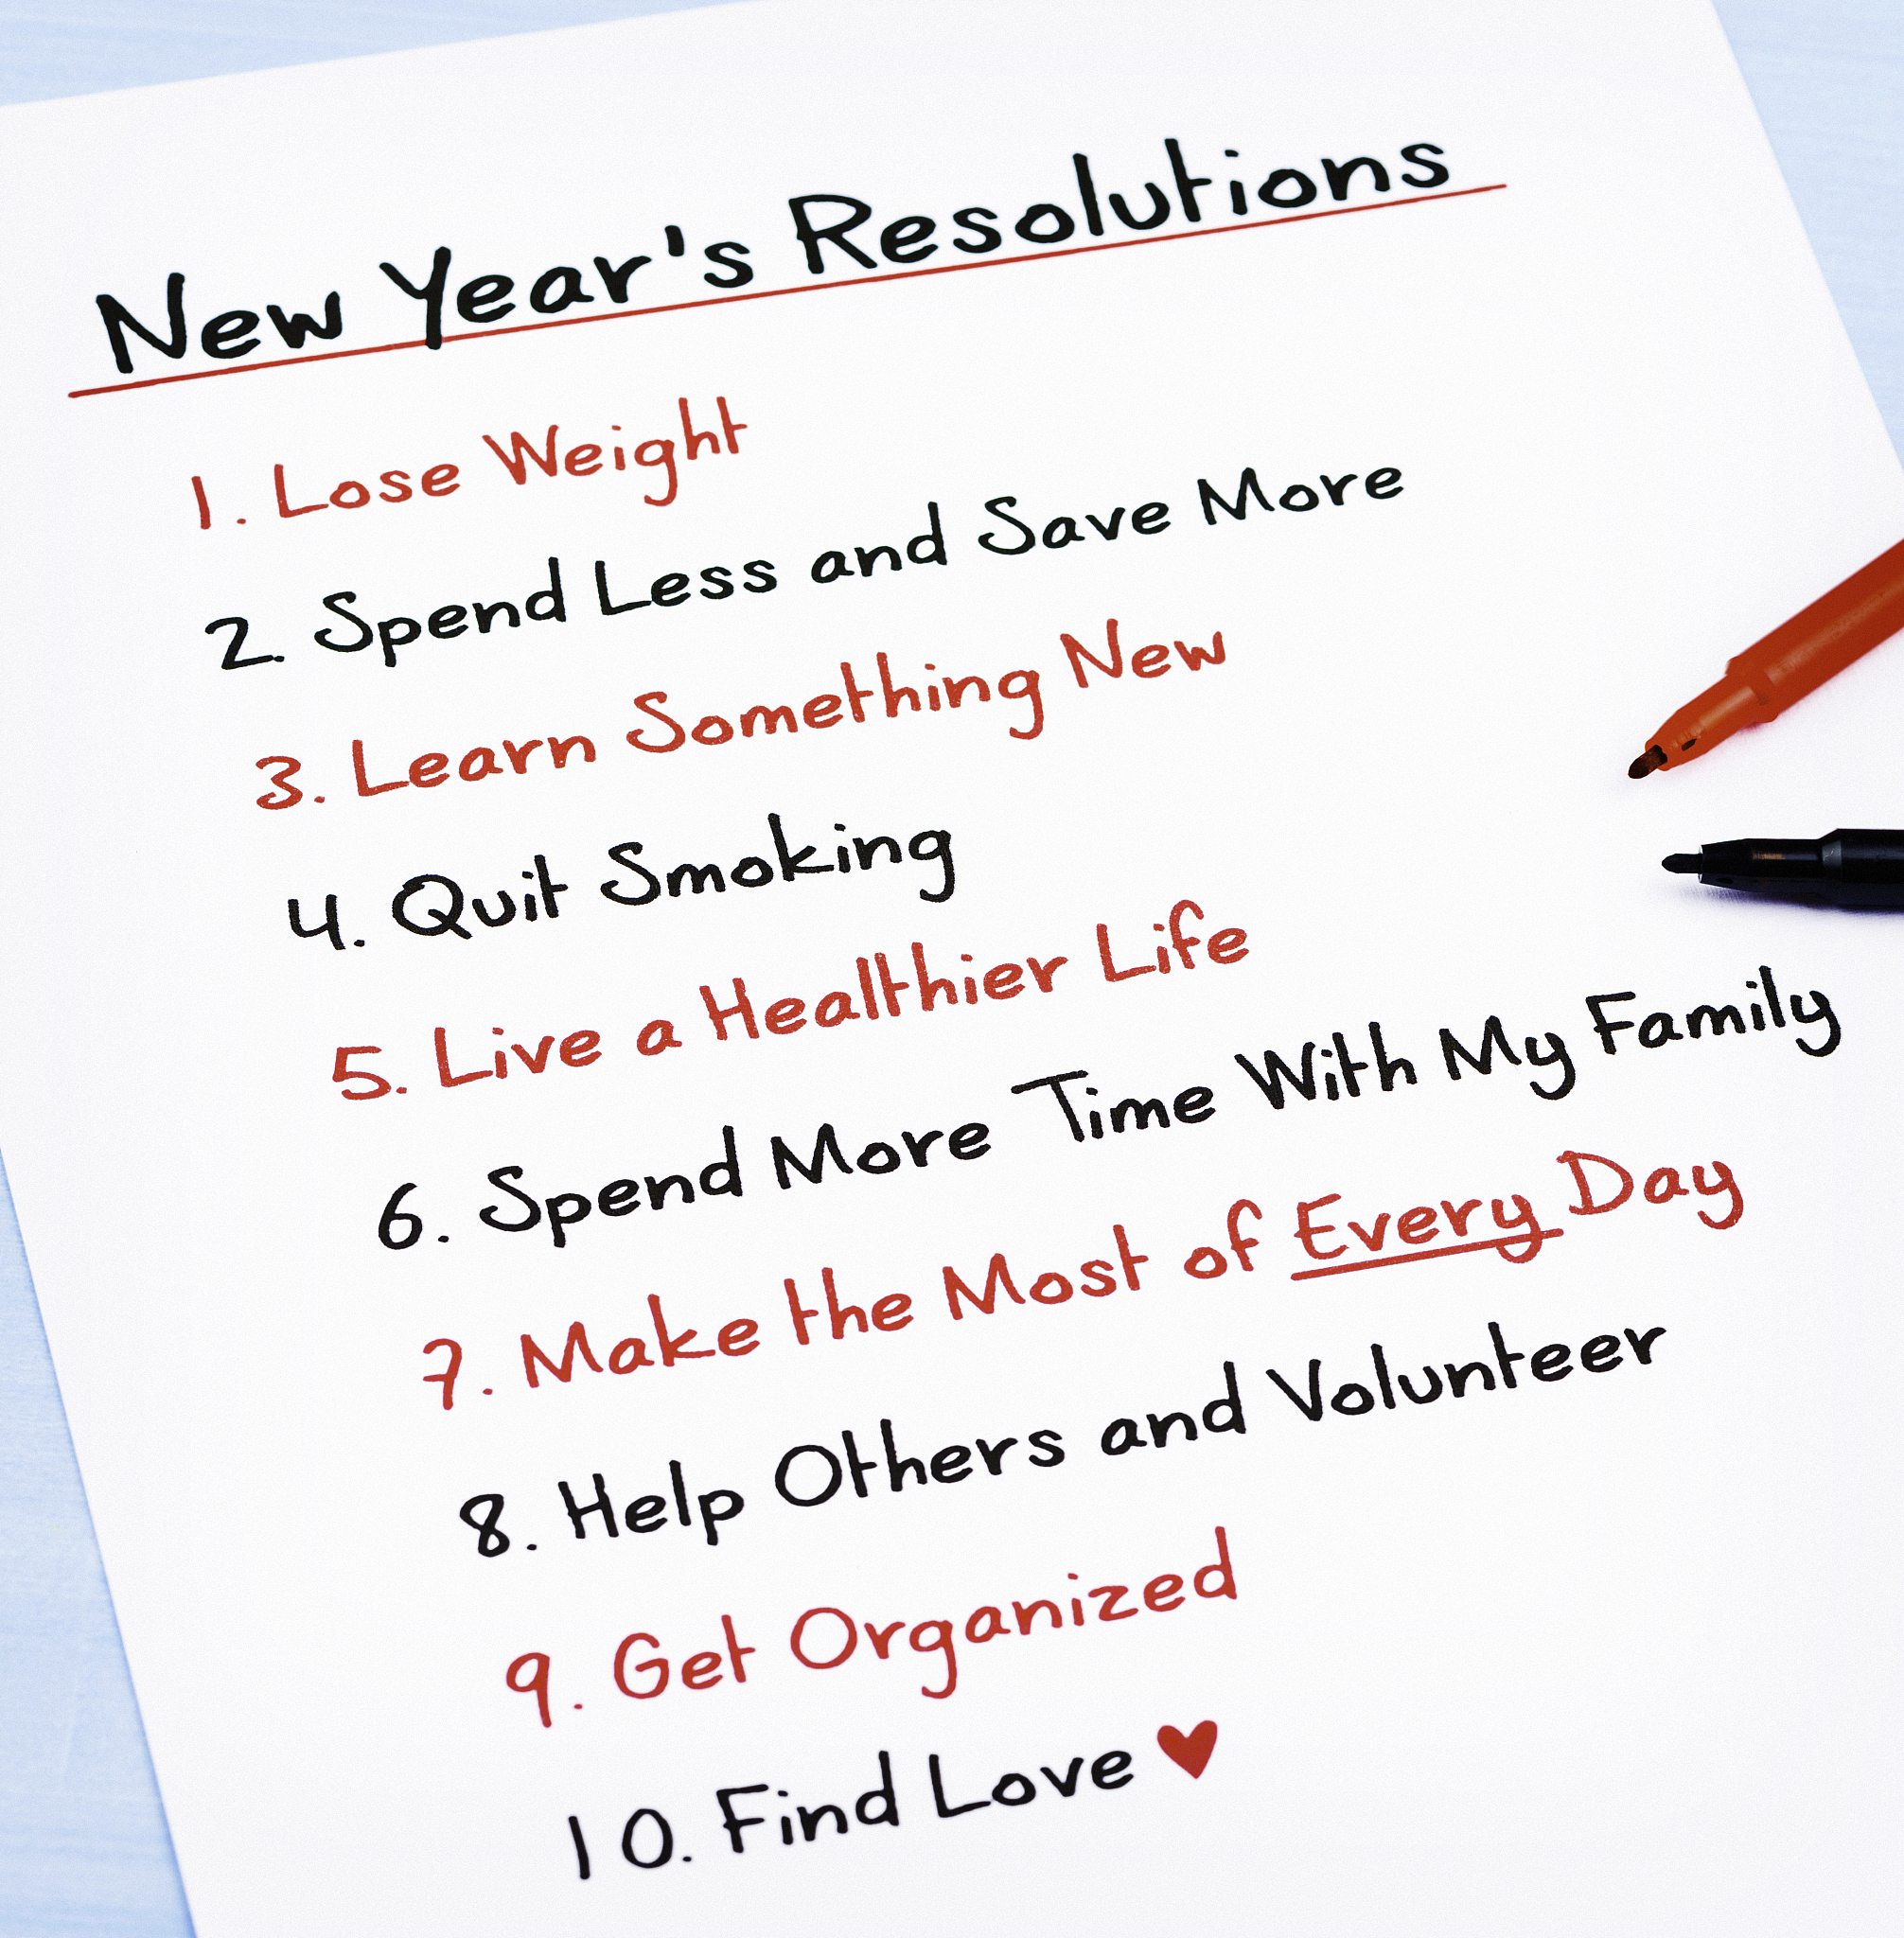 New Year's Resolutions
1. Lose Weight
2. Spend Less and Save More
3. Learn Something New
4. Quit Smoking
5. Live a Healthier Life
6. Spend More Time With My Family
7. Make the Most of Every Day
8. Help Others and Volunteer
9. Get Organized
10. Find Love ♥